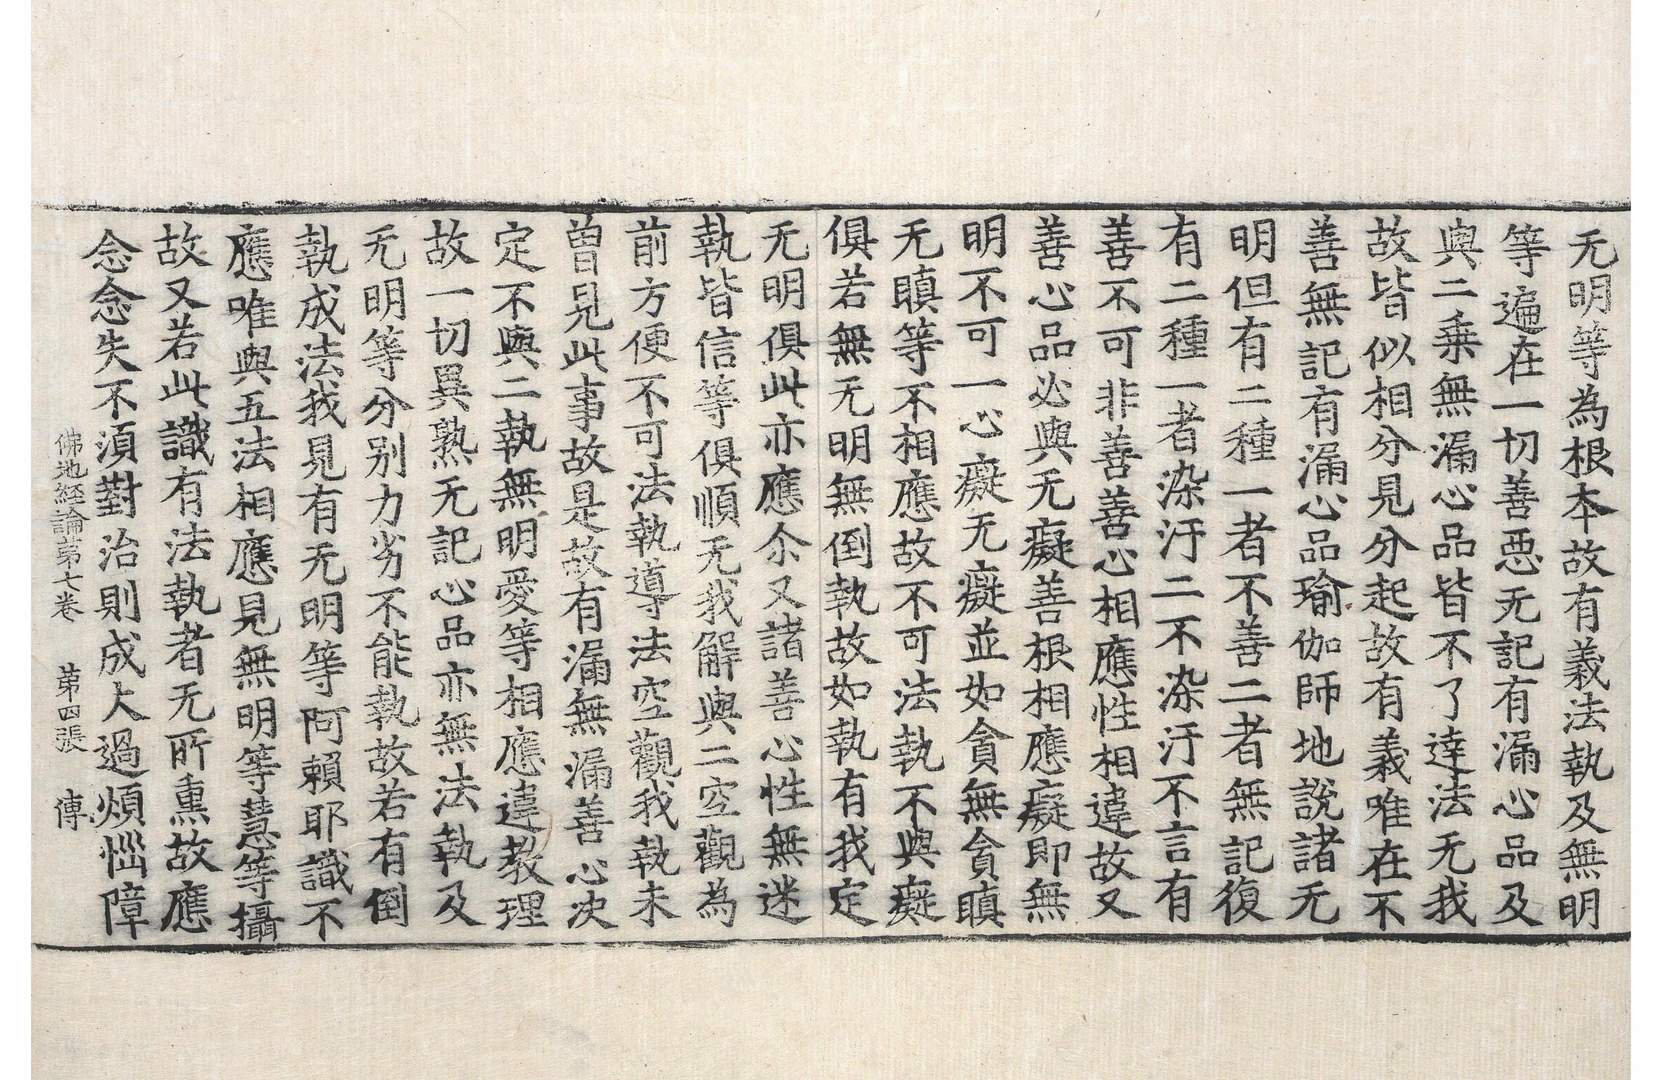 无明等為根本故有義法執及無明
等遍在一切善惡无記有漏心品及
與二乗無漏心品皆不了達法无我
故皆似相分見分起故有義唯在不
善無記有漏心品瑜伽師地說諸无
明但有二種一者不善二者無記復
有二種一者染汙二不染汙不言有
善不可非善善心相應性相違故又
善心品必與无癡善根相應癡即無
明不可一心癡无癡並如貪無貪瞋
无瞋等不相應故不可法執不與癡
俱若無无明無倒執故如執有我定
无明俱此亦應尒又諸善心性無迷
執皆信等俱順无我解與二空觀為
前方便不可法執導法空觀我執未
曾見此事故是故有漏無漏善心决
定不與二執無明愛等相應違教理
故一切異熟无記心品亦無法執及
无明等分别力劣不能執故若有倒
執成法我見有无明等阿賴耶識不
應唯與五法相應見無明等慧等攝
故又若此識有法執者无所熏故應
念念失不湏對治則成大過煩惱障
佛地経論苐七卷　苐四張　傳